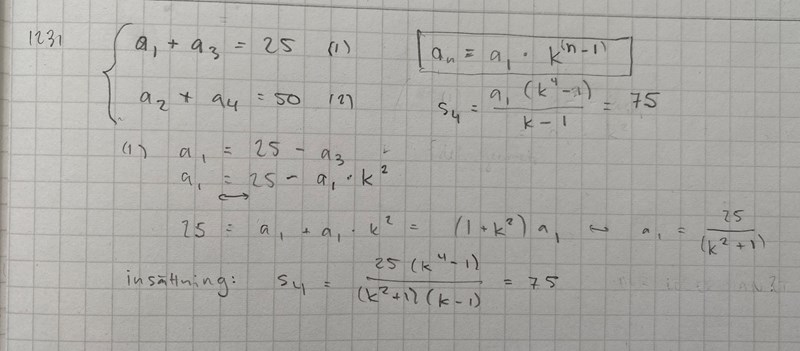 1231
a₁ + a₃ = 25 (1)
aₙ = a₁ · k⁽ⁿ⁻¹⁾
a₂ + a₄ = 50 (2)
s₄ = a₁ (k⁴-1) / k-1 = 75
(1) a₁ = 25 - a₃
a₁ = 25 - a₁ · k²
↔
25 = a₁ + a₁ · k² = (1+k²) a₁ ↔ a₁ = 25 / (k²+1)
insättning: s₄ = 25 (k⁴-1) / (k²+1) (k-1) = 75